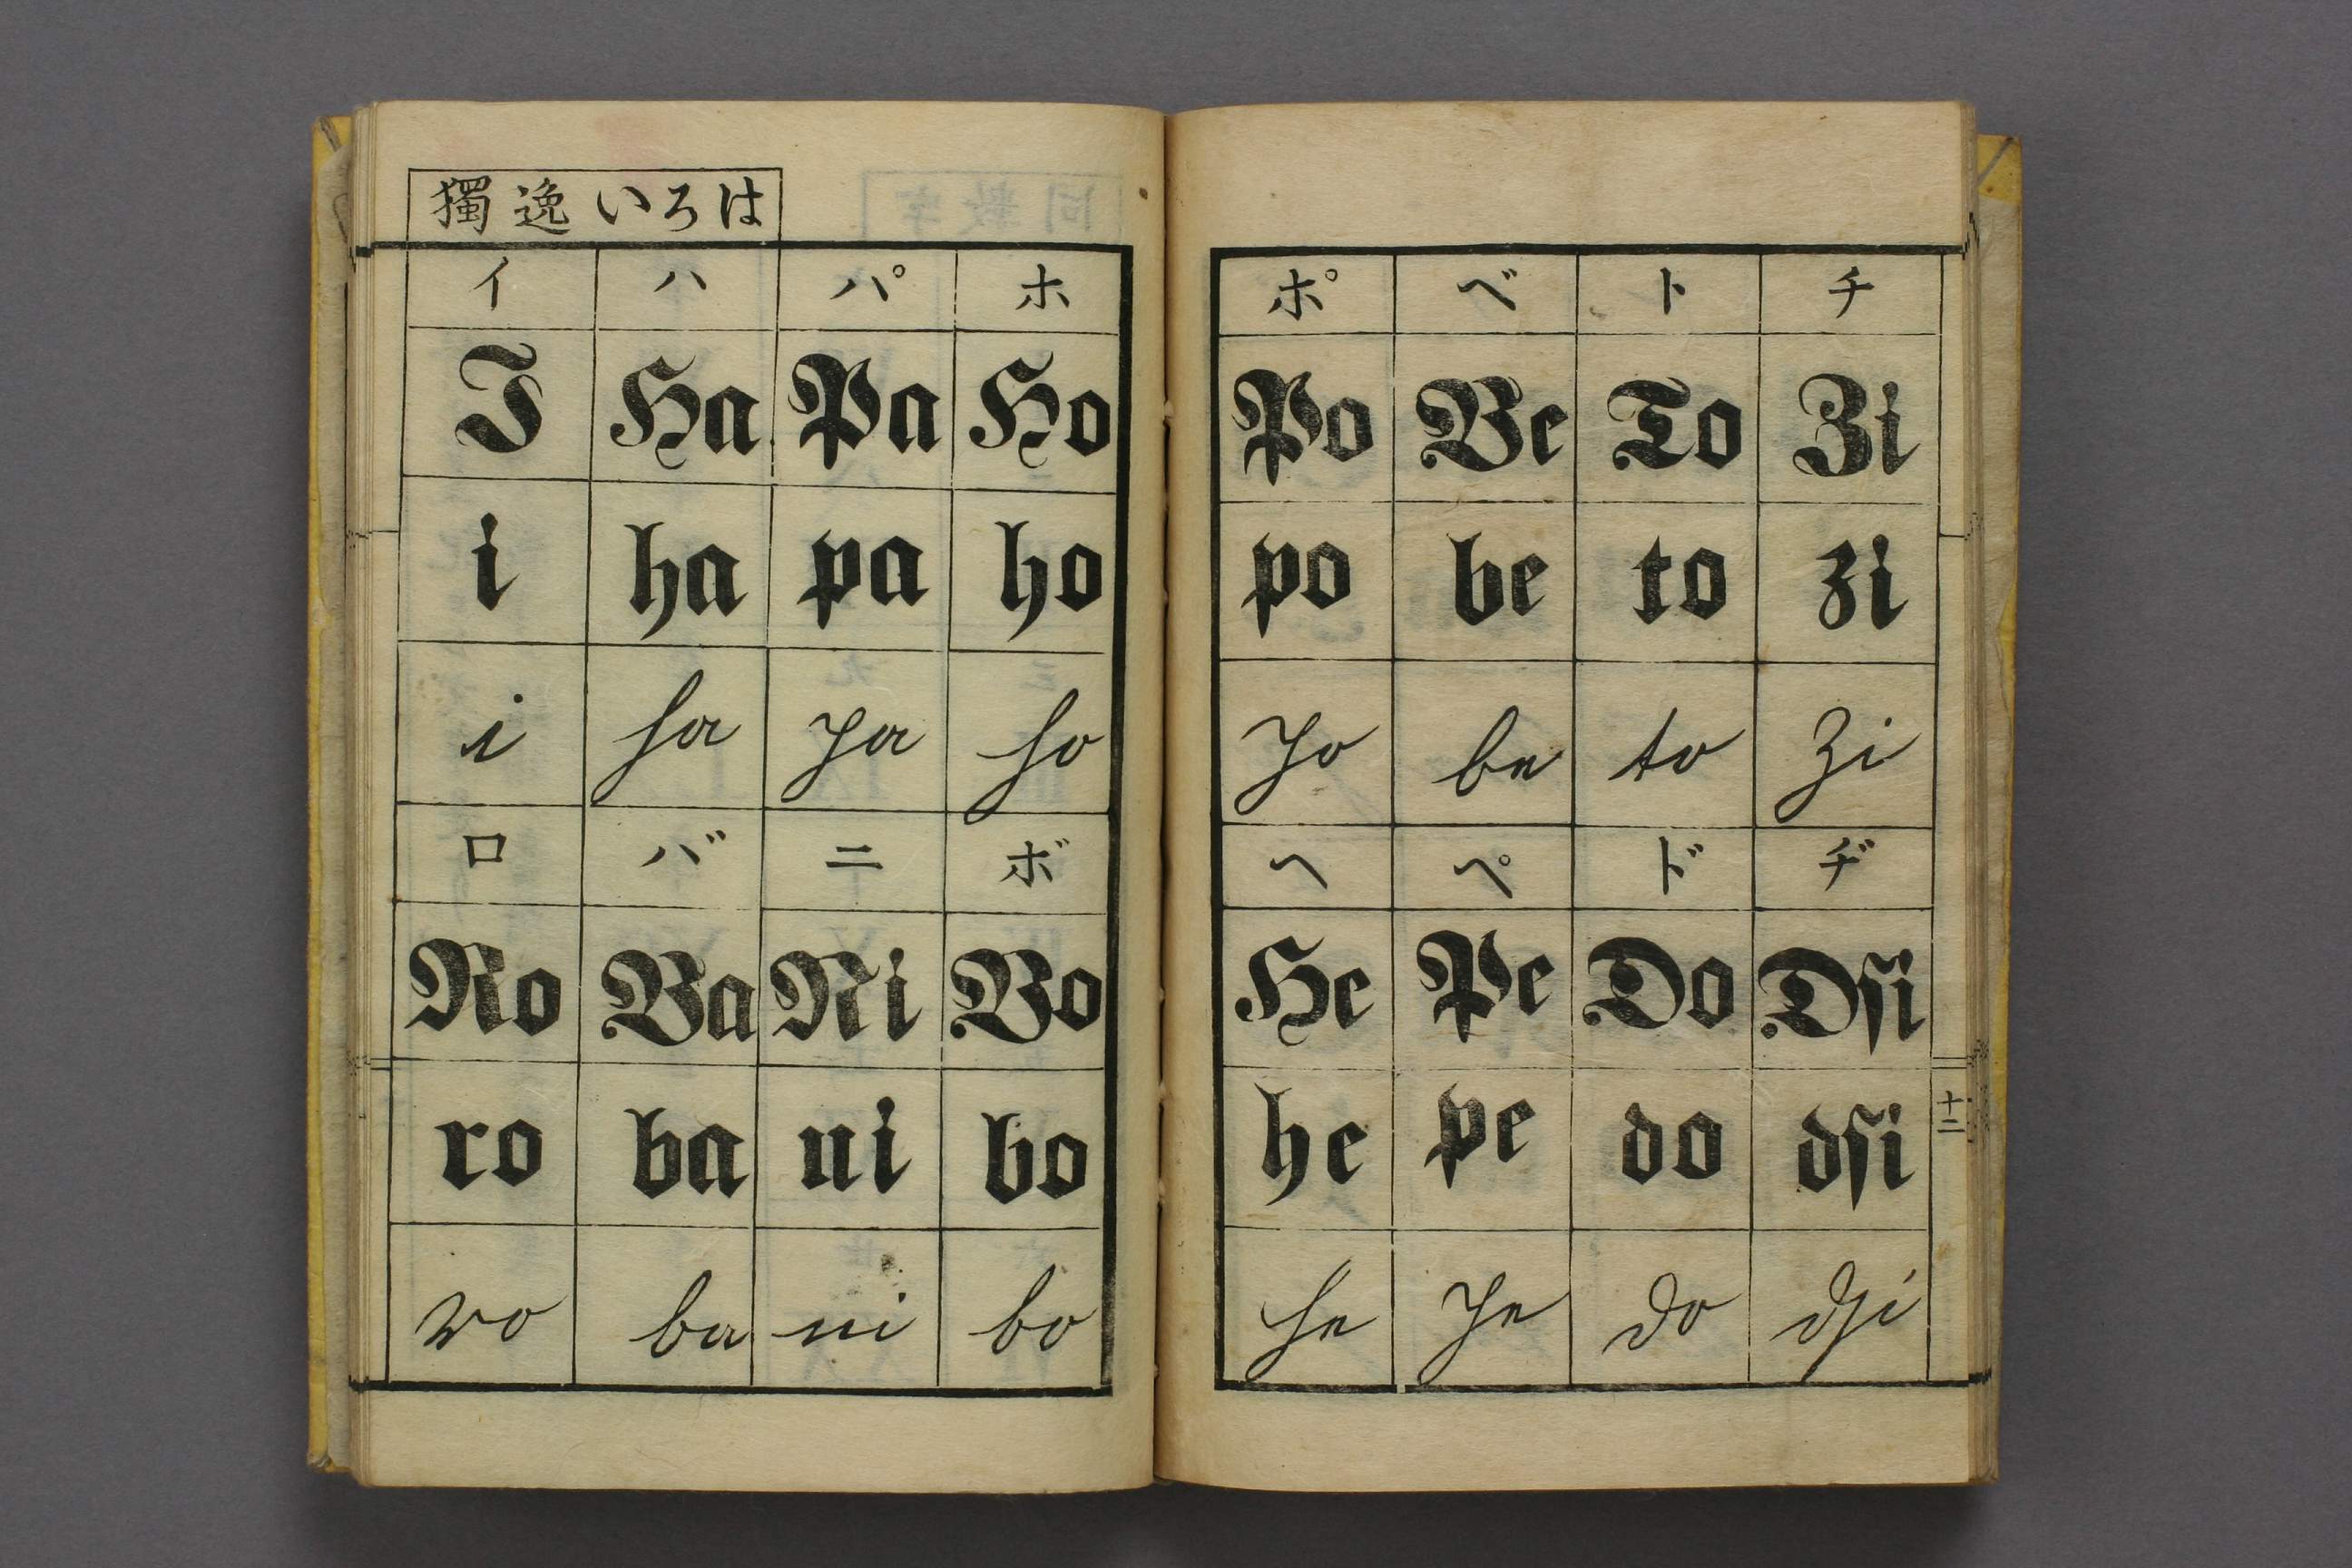 獨逸いろは
イ ハ パ ホ
I Ha Pa Ho
i ha pa ho
i ha pa ho
ロ バ ニ ボ
Ro Ba Ni Bo
ro ba ni bo
ro ba ni bo
ポ ベ ト チ
Po Be To Zi
po be to zi
po be to zi
ヘ ペ ド ヂ
He Pe Do Dſi
he pe do dſi
he pe do dſi
十二